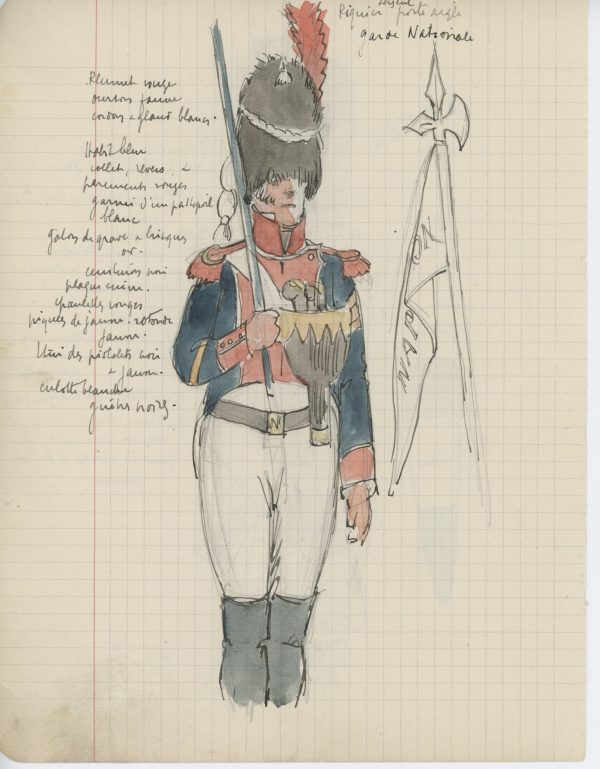 sergent
Piquier porte aigle
garde Nationale
Plumet rouge
ourson fauve
cordon & gland blancs.
Habit bleu
collet, revers, &
parements rouges
garni d'un passepoil
blanc
galons de grade & brisques
or.
ceinturon noir
plaque cuivre.
épaulettes rouges
piquées de jaune. rotonde
jaune.
Etui des pistolets noir
& jaune.
culotte blanche
guêtres noires.
N